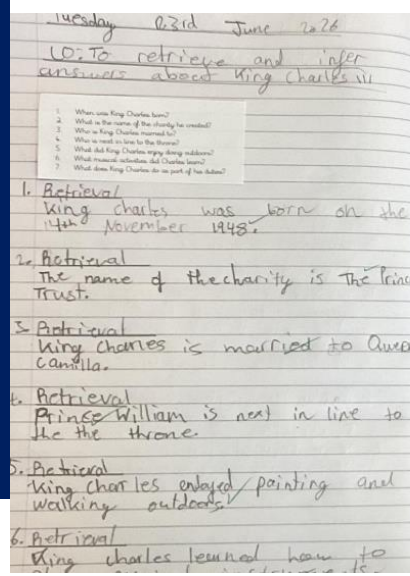 Tuesday 23rd June 2026
LO: To retrieve and infer
answers about King Charles iii
1. When was King Charles born?
2. What is the name of the charity he created?
3. Who is King Charles married to?
4. Who is next in line to the throne?
5. What did King Charles enjoy doing outdoors?
6. What musical activities did Charles learn?
7. What does King Charles do as part of his duties?
1. Retrieval
King charles was born on the
14th November 1948.
2. Retrieval
The name of the charity is The Princ
Trust.
3. Retrieval
King Charles is married to Quee
Camilla.
4. Retrieval
Prince William is next in line to
the the throne.
5. Retrieval
King Charles enloyed painting and
walking outdoors.
6. Retrieval
King charles learned how to